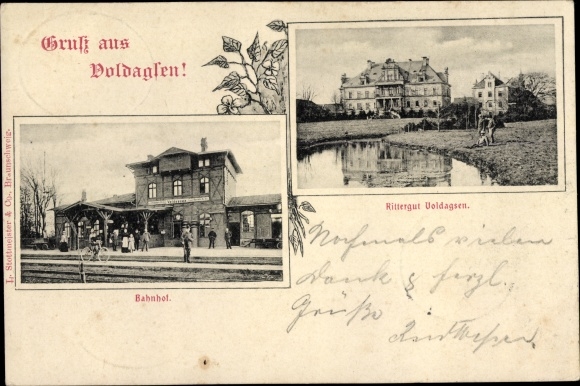 Gruß aus
Voldagsen!
Rittergut Voldagsen.
Bahnhof.
Stottmeister & Co., Braunschweig.
Nochmals vielen
Dank & herzl.
Grüße